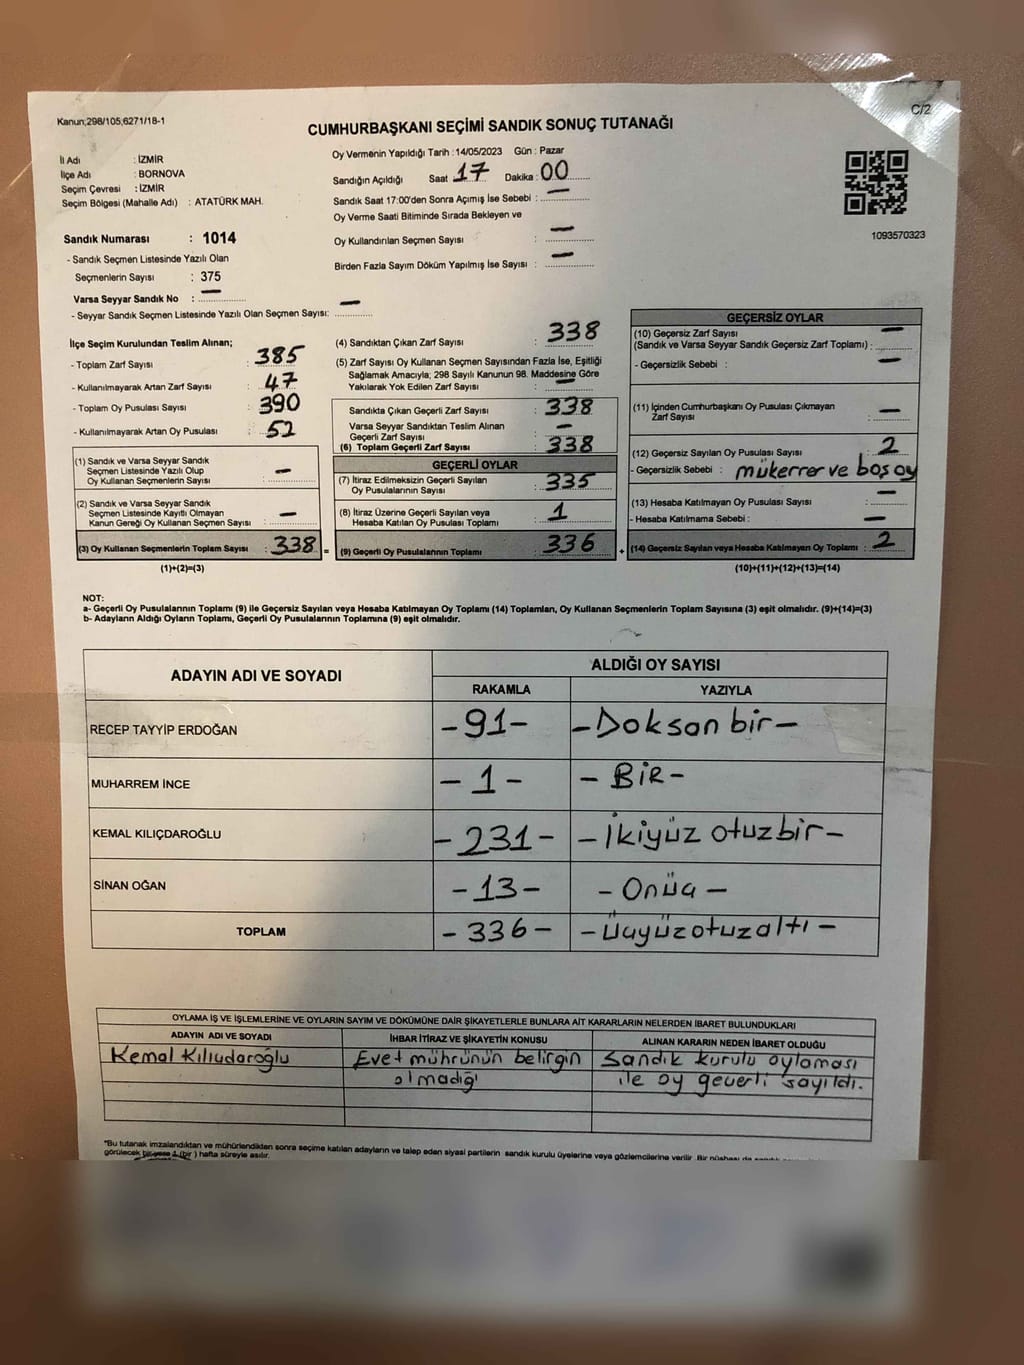 Kanun;298/105;6271/18-1
C/2
CUMHURBAŞKANI SEÇİMİ SANDIK SONUÇ TUTANAĞI
İl Adı : İZMİR
İlçe Adı : BORNOVA
Seçim Çevresi : İZMİR
Seçim Bölgesi (Mahalle Adı) : ATATÜRK MAH.
Oy Vermenin Yapıldığı Tarih :14/05/2023 Gün : Pazar
Sandığın Açıldığı Saat : 17 Dakika : 00
Sandık Saat 17:00'den Sonra Açımış İse Sebebi : —
Oy Verme Saati Bitiminde Sırada Bekleyen ve
Oy Kullandırılan Seçmen Sayısı : —
Birden Fazla Sayım Döküm Yapılmış İse Sayısı : —
1093570323
Sandık Numarası : 1014
- Sandık Seçmen Listesinde Yazılı Olan
Seçmenlerin Sayısı : 375
Varsa Seyyar Sandık No : —
- Seyyar Sandık Seçmen Listesinde Yazılı Olan Seçmen Sayısı: —
İlçe Seçim Kurulundan Teslim Alınan;
- Toplam Zarf Sayısı : 385
- Kullanılmayarak Artan Zarf Sayısı : 47
- Toplam Oy Pusulası Sayısı : 390
- Kullanılmayarak Artan Oy Pusulası : 52
(1) Sandık ve Varsa Seyyar Sandık
Seçmen Listesinde Yazılı Olup
Oy Kullanan Seçmenlerin Sayısı : —
(2) Sandık ve Varsa Seyyar Sandık
Seçmen Listesinde Kayıtlı Olmayan
Kanun Gereği Oy Kullanan Seçmen Sayısı : —
(3) Oy Kullanan Seçmenlerin Toplam Sayısı : 338 =
(1)+(2)=(3)
(4) Sandıktan Çıkan Zarf Sayısı : 338
(5) Zarf Sayısı Oy Kullanan Seçmen Sayısından Fazla İse, Eşitliği
Sağlamak Amacıyla; 298 Sayılı Kanunun 98. Maddesine Göre
Yakılarak Yok Edilen Zarf Sayısı : —
Sandıkta Çıkan Geçerli Zarf Sayısı : 338
Varsa Seyyar Sandıktan Teslim Alınan
Geçerli Zarf Sayısı : —
(6) Toplam Geçerli Zarf Sayısı : 338
GEÇERLİ OYLAR
(7) İtiraz Edilmeksizin Geçerli Sayılan
Oy Pusulalarının Sayısı : 335
(8) İtiraz Üzerine Geçerli Sayılan veya
Hesaba Katılan Oy Pusulası Toplamı : 1
(9) Geçerli Oy Pusulalarının Toplamı : 336 +
GEÇERSİZ OYLAR
(10) Geçersiz Zarf Sayısı
(Sandık ve Varsa Seyyar Sandık Geçersiz Zarf Toplamı) : —
- Geçersizlik Sebebi : —
(11) İçinden Cumhurbaşkanı Oy Pusulası Çıkmayan
Zarf Sayısı : —
(12) Geçersiz Sayılan Oy Pusulası Sayısı : 2
- Geçersizlik Sebebi : mükerrer ve boş oy
(13) Hesaba Katılmayan Oy Pusulası Sayısı : —
- Hesaba Katılmama Sebebi : —
(14) Geçersiz Sayılan veya Hesaba Katılmayan Oy Toplamı : 2
(10)+(11)+(12)+(13)=(14)
NOT:
a- Geçerli Oy Pusulalarının Toplamı (9) ile Geçersiz Sayılan veya Hesaba Katılmayan Oy Toplamı (14) Toplamları, Oy Kullanan Seçmenlerin Toplam Sayısına (3) eşit olmalıdır. (9)+(14)=(3)
b- Adayların Aldığı Oyların Toplamı, Geçerli Oy Pusulalarının Toplamına (9) eşit olmalıdır.
ADAYIN ADI VE SOYADI ALDIĞI OY SAYISI
RAKAMLA YAZIYLA
RECEP TAYYİP ERDOĞAN -91- -Doksan bir-
MUHARREM İNCE -1- -BİR-
KEMAL KILIÇDAROĞLU -231- -İkiyüz otuzbir-
SİNAN OĞAN -13- -Onüç-
TOPLAM -336- -Üçyüzotuzaltı-
OYLAMA İŞ VE İŞLEMLERİNE VE OYLARIN SAYIM VE DÖKÜMÜNE DAİR ŞİKAYETLERLE BUNLARA AİT KARARLARIN NELERDEN İBARET BULUNDUKLARI
ADAYIN ADI VE SOYADI İHBAR İTİRAZ VE ŞİKAYETİN KONUSU ALINAN KARARIN NEDEN İBARET OLDUĞU
Kemal Kılıçdaroğlu Evet mührünün belirgin Sandık kurulu oylaması
olmadığı ile oy geçerli sayıldı.
*Bu tutanak imzalandıktan ve mühürlendikten sonra seçime katılan adayların ve talep eden siyasi partilerin sandık kurulu üyelerine veya gözlemcilerine verilir. Bir nüshası da
görülecek bir yere 1 (bir) hafta süreyle asılır.